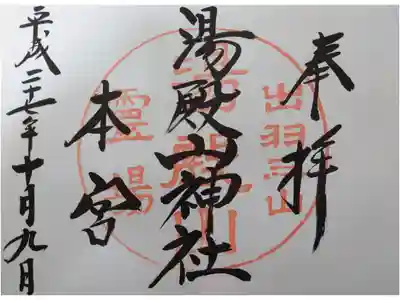 奉拝
出羽三山
湯殿山神社
湯殿山
本宮
霊場
平成二十七年十月九日